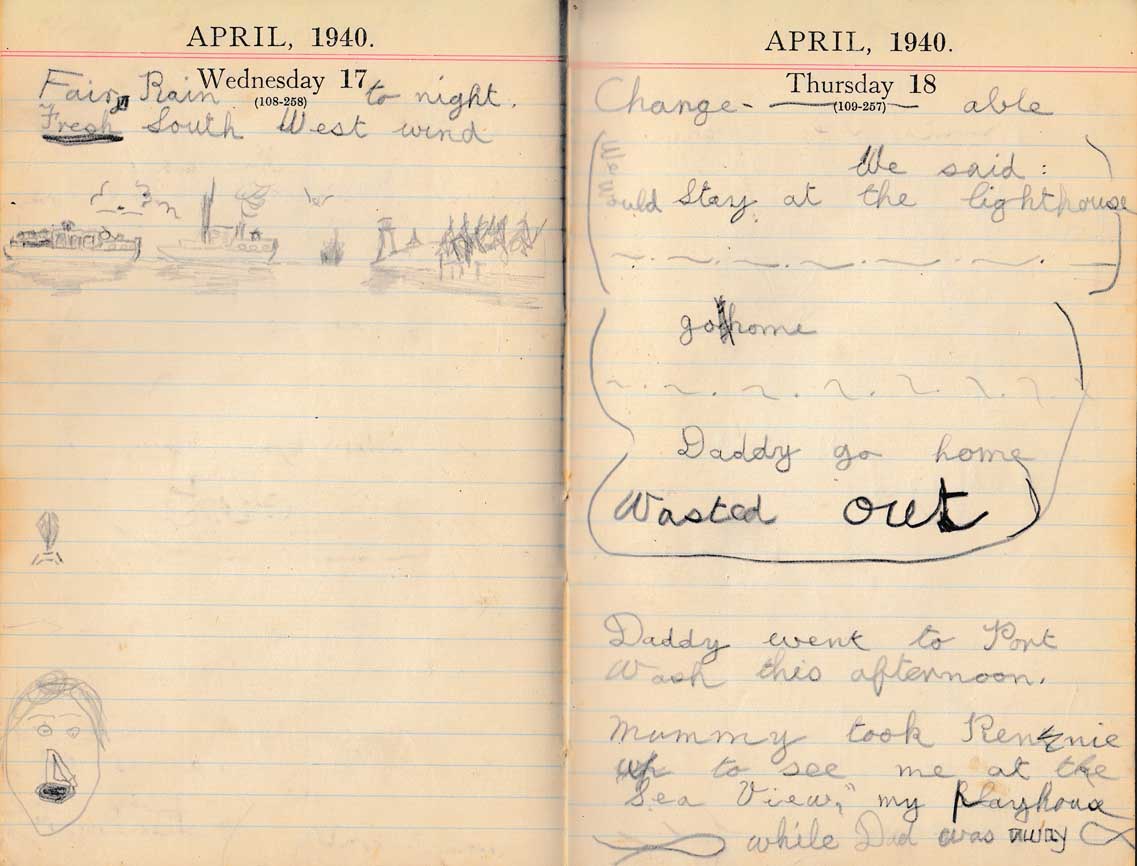 APRIL, 1940.
Wednesday 17
(108-258)
Fair, Rain to night.
Fresh South West wind
APRIL, 1940.
Thursday 18
(109-257)
Change- able
We said:
Stay at the lighthouse
go home
Daddy go home
Wasted out
Daddy went to Port
Wash this afternoon.
Mummy took Rennie
to see me at the
"Sea View," my Playhouse
while Dad was away